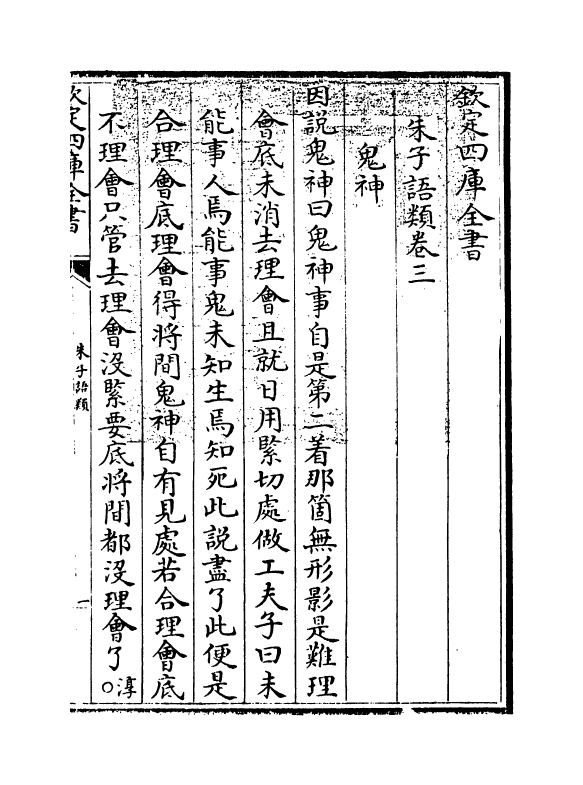 欽定四庫全書
朱子語類卷三
鬼神
因説鬼神曰鬼神事自是第二着那箇無形影是難理
會底未消去理會且就日用緊切處做工夫子曰未
能事人焉能事鬼未知生焉知死此説盡了此便是
合理會底理會得將間鬼神自有見處若合理會底
不理會只管去理會沒緊要底將間都沒理會了淳○
欽定四庫全書
朱子語類
一